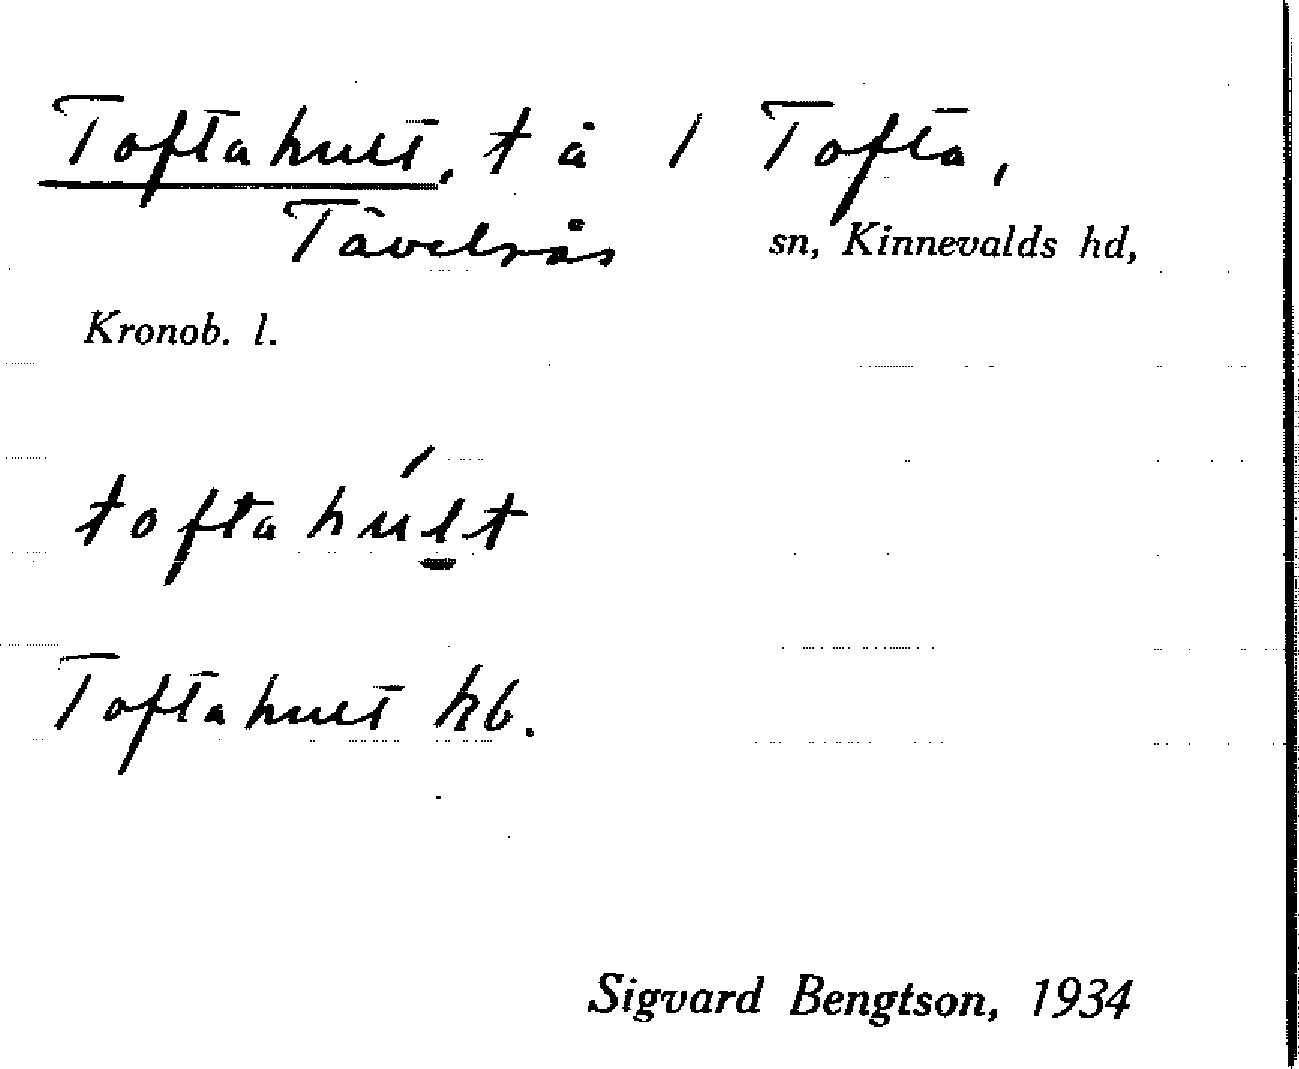 Toftahult, t å 1 Tofta,
Tävelsås sn, Kinnevalds hd,
Kronob. l.
toftahúlt
Toftahult kb.
Sigvard Bengtson, 1934